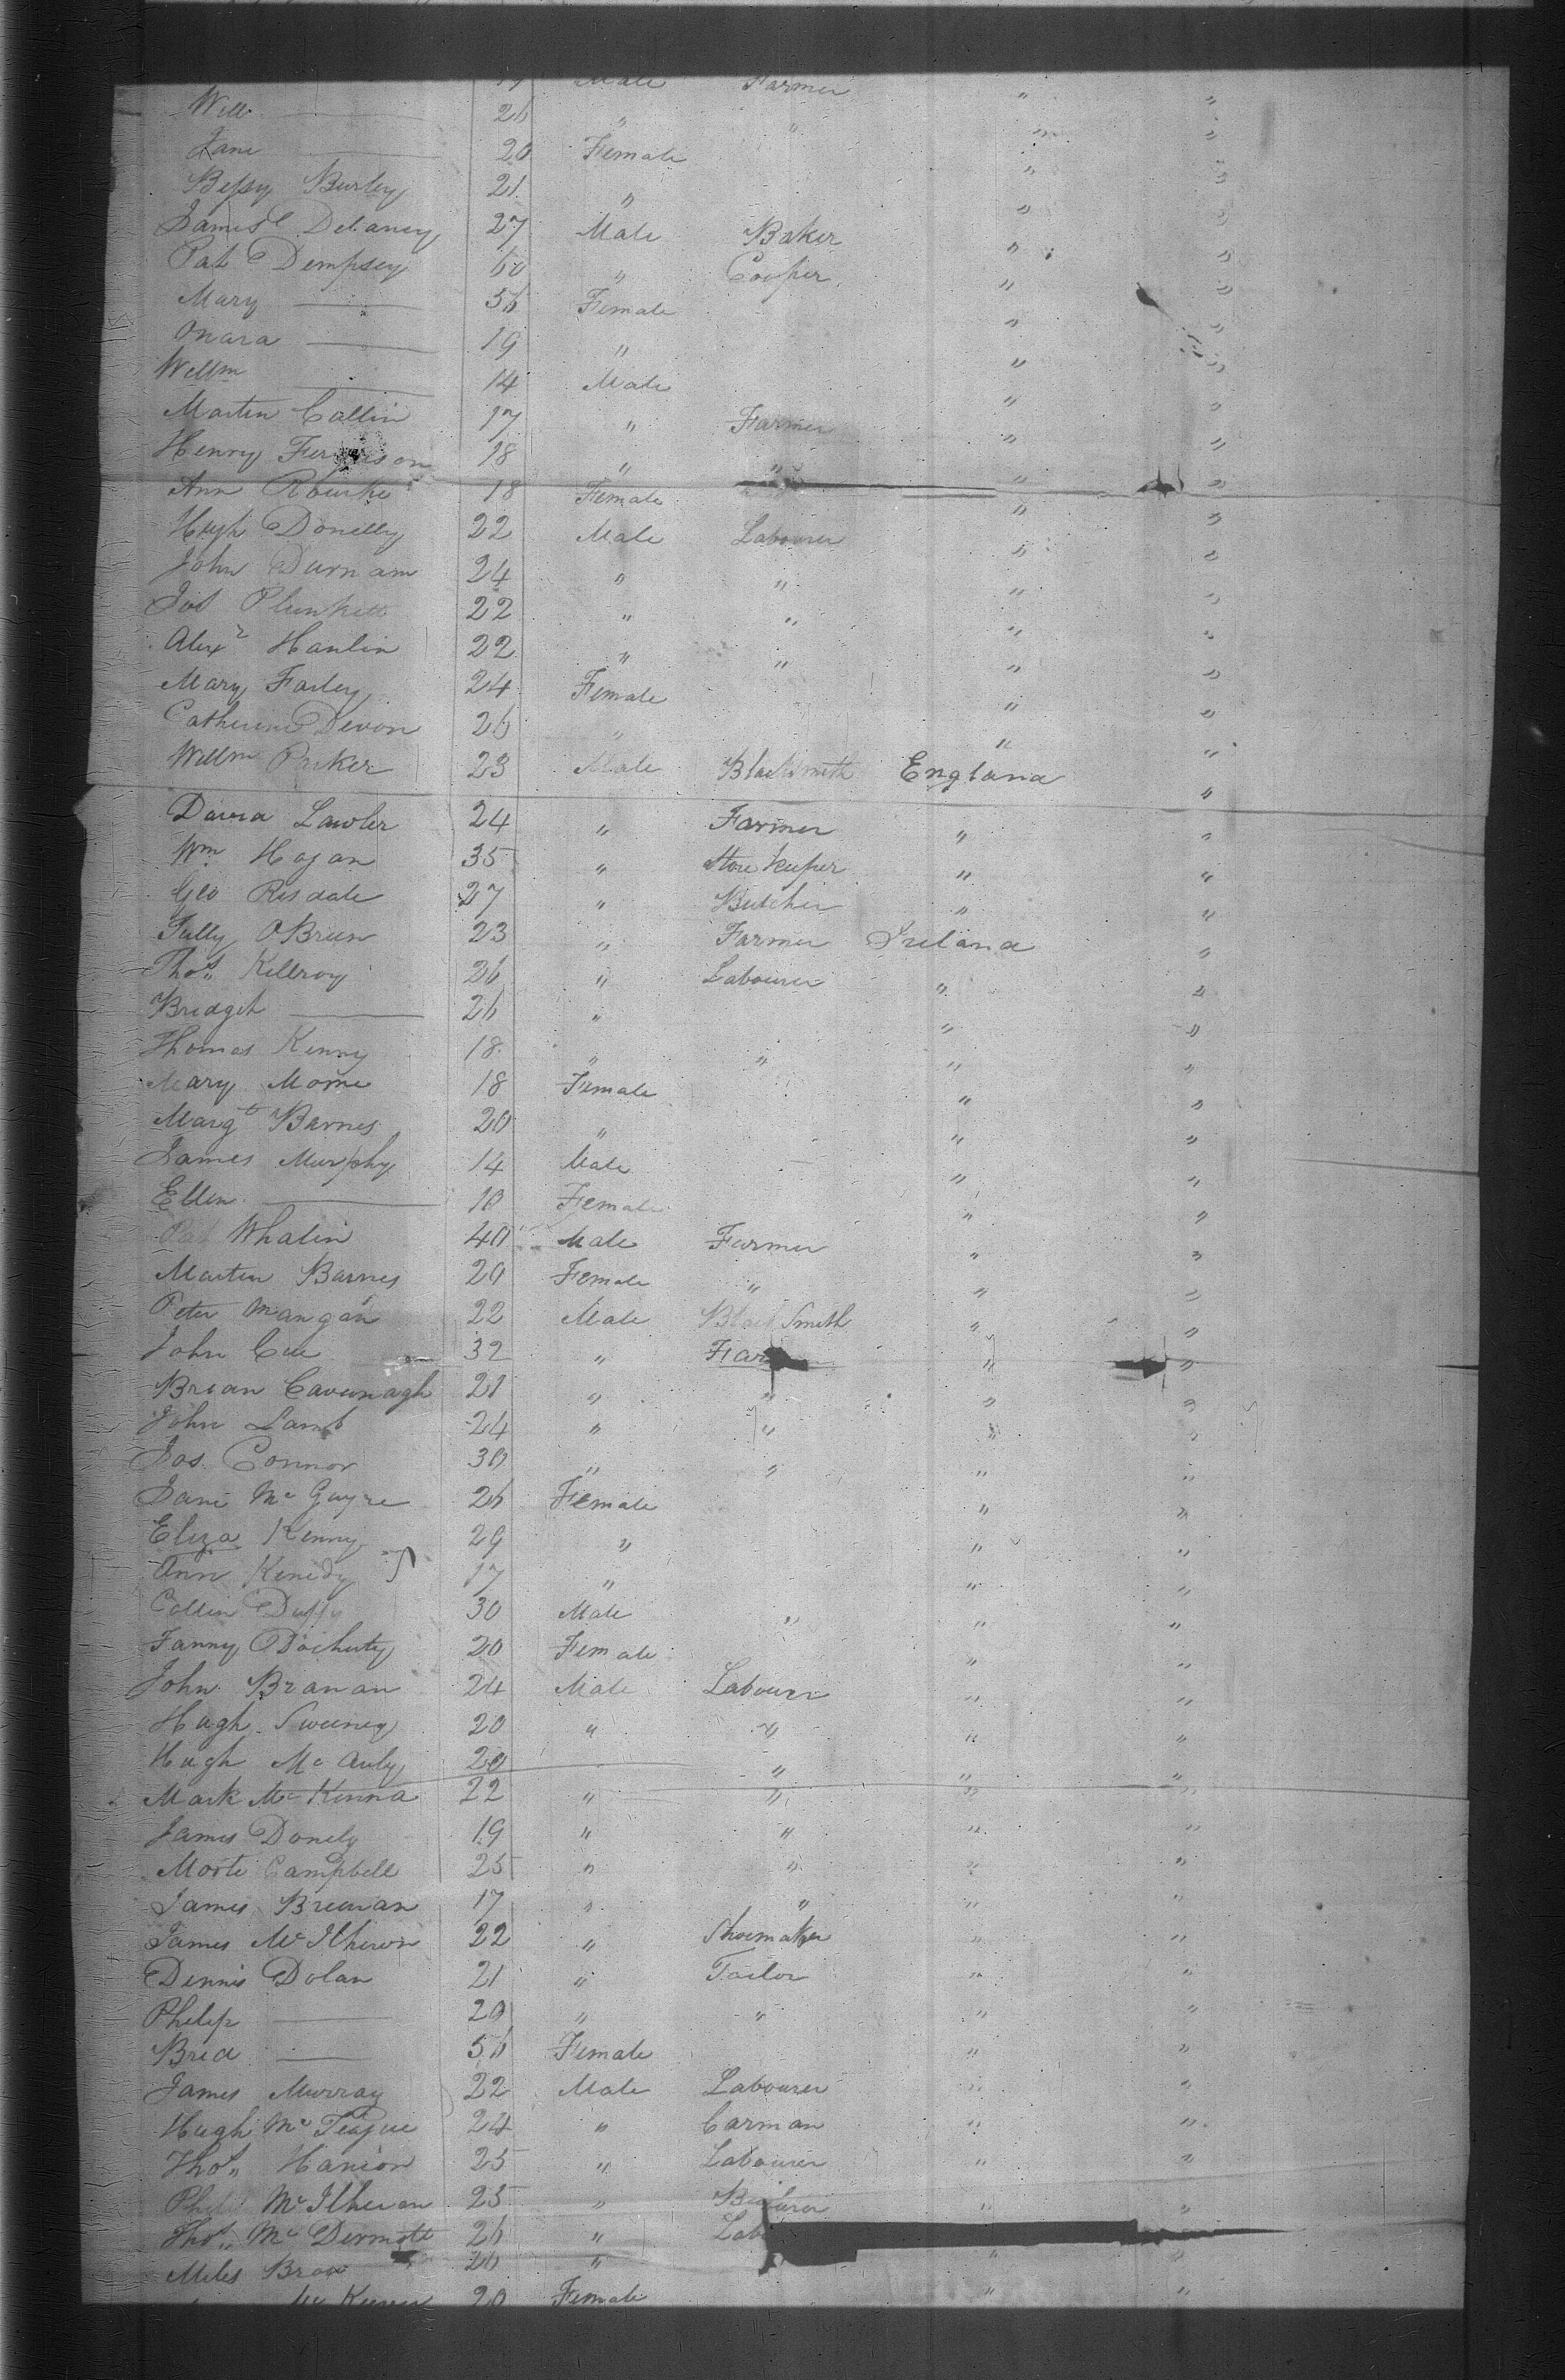 Male Farmer " "
Will. —— 26 " " " "
Jane —— 20 Female " "
Bessy Burley 21 " " "
James Delaney 27 Male Baker " "
Pat Dempsey 60 " Cooper " "
Mary —— 56 Female " "
Onara —— 19 " " "
Willm —— 14 Male " "
Martin Callin 17 " Farmer " "
Henry Ferguson 18 " " " "
Ann Rourke 18 Female " "
Hugh Donelly 22 Male Labourer " "
John Durnam 24 " " " "
Jos Plunkett 22 " " " "
Alexr Hanlin 22 " " " "
Mary Farley 24 Female " "
Catherine Devon 26 " " "
Willm Parker 23 Male Blacksmith England "
David Lawler 24 " Farmer " "
Wm Hogan 35 " Store Keeper " "
Geo Risdale 27 " Butcher " "
Tully OBrien 23 " Farmer Ireland "
Thos Killroy 26 " Labourer " "
Bridget —— 26 " " "
Thomas Kenny 18 " " " "
Mary Morne 18 Female " "
Margt Barnes 20 " " "
James Murphy 14 Male " "
Ellen —— 10 Female " "
Pat Whalin 40 Male Farmer " "
Martin Barnes 20 Female " " "
Peter Mangan 22 Male Black Smith " "
John Cue 32 " Far " "
Brian Cavenagh 21 " " " "
John Lamb 24 " " " "
Jas. Connor 30 " " " "
Jane McGuyre 26 Female " "
Eliza Kenny 29 " " "
Ann Kenedy 17 " " "
Collin Duffy 30 Male " " "
Fanny Docherty 20 Female " "
John Branan 24 Male Labourer " "
Hugh Sweeney 20 " " " "
Hugh McAuly 20 " " "
Mark McKenna 22 " " " "
James Donely 19 " " " "
Morti Campbell 25 " " " "
James Breenan 17 " " " "
James McIlheron 22 " Shoemaker " "
Dennis Dolan 21 " Tailor " "
Philip —— 20 " " " "
Brid —— 56 Female " "
James Murray 22 Male Labourer " "
Hugh McTeague 24 " Carman " "
Thos Hanion 25 " Labourer " "
McIlheran 25 " " "
Thos McDermott 26 " Lab "
Miles 20 " " "
20 Female " "